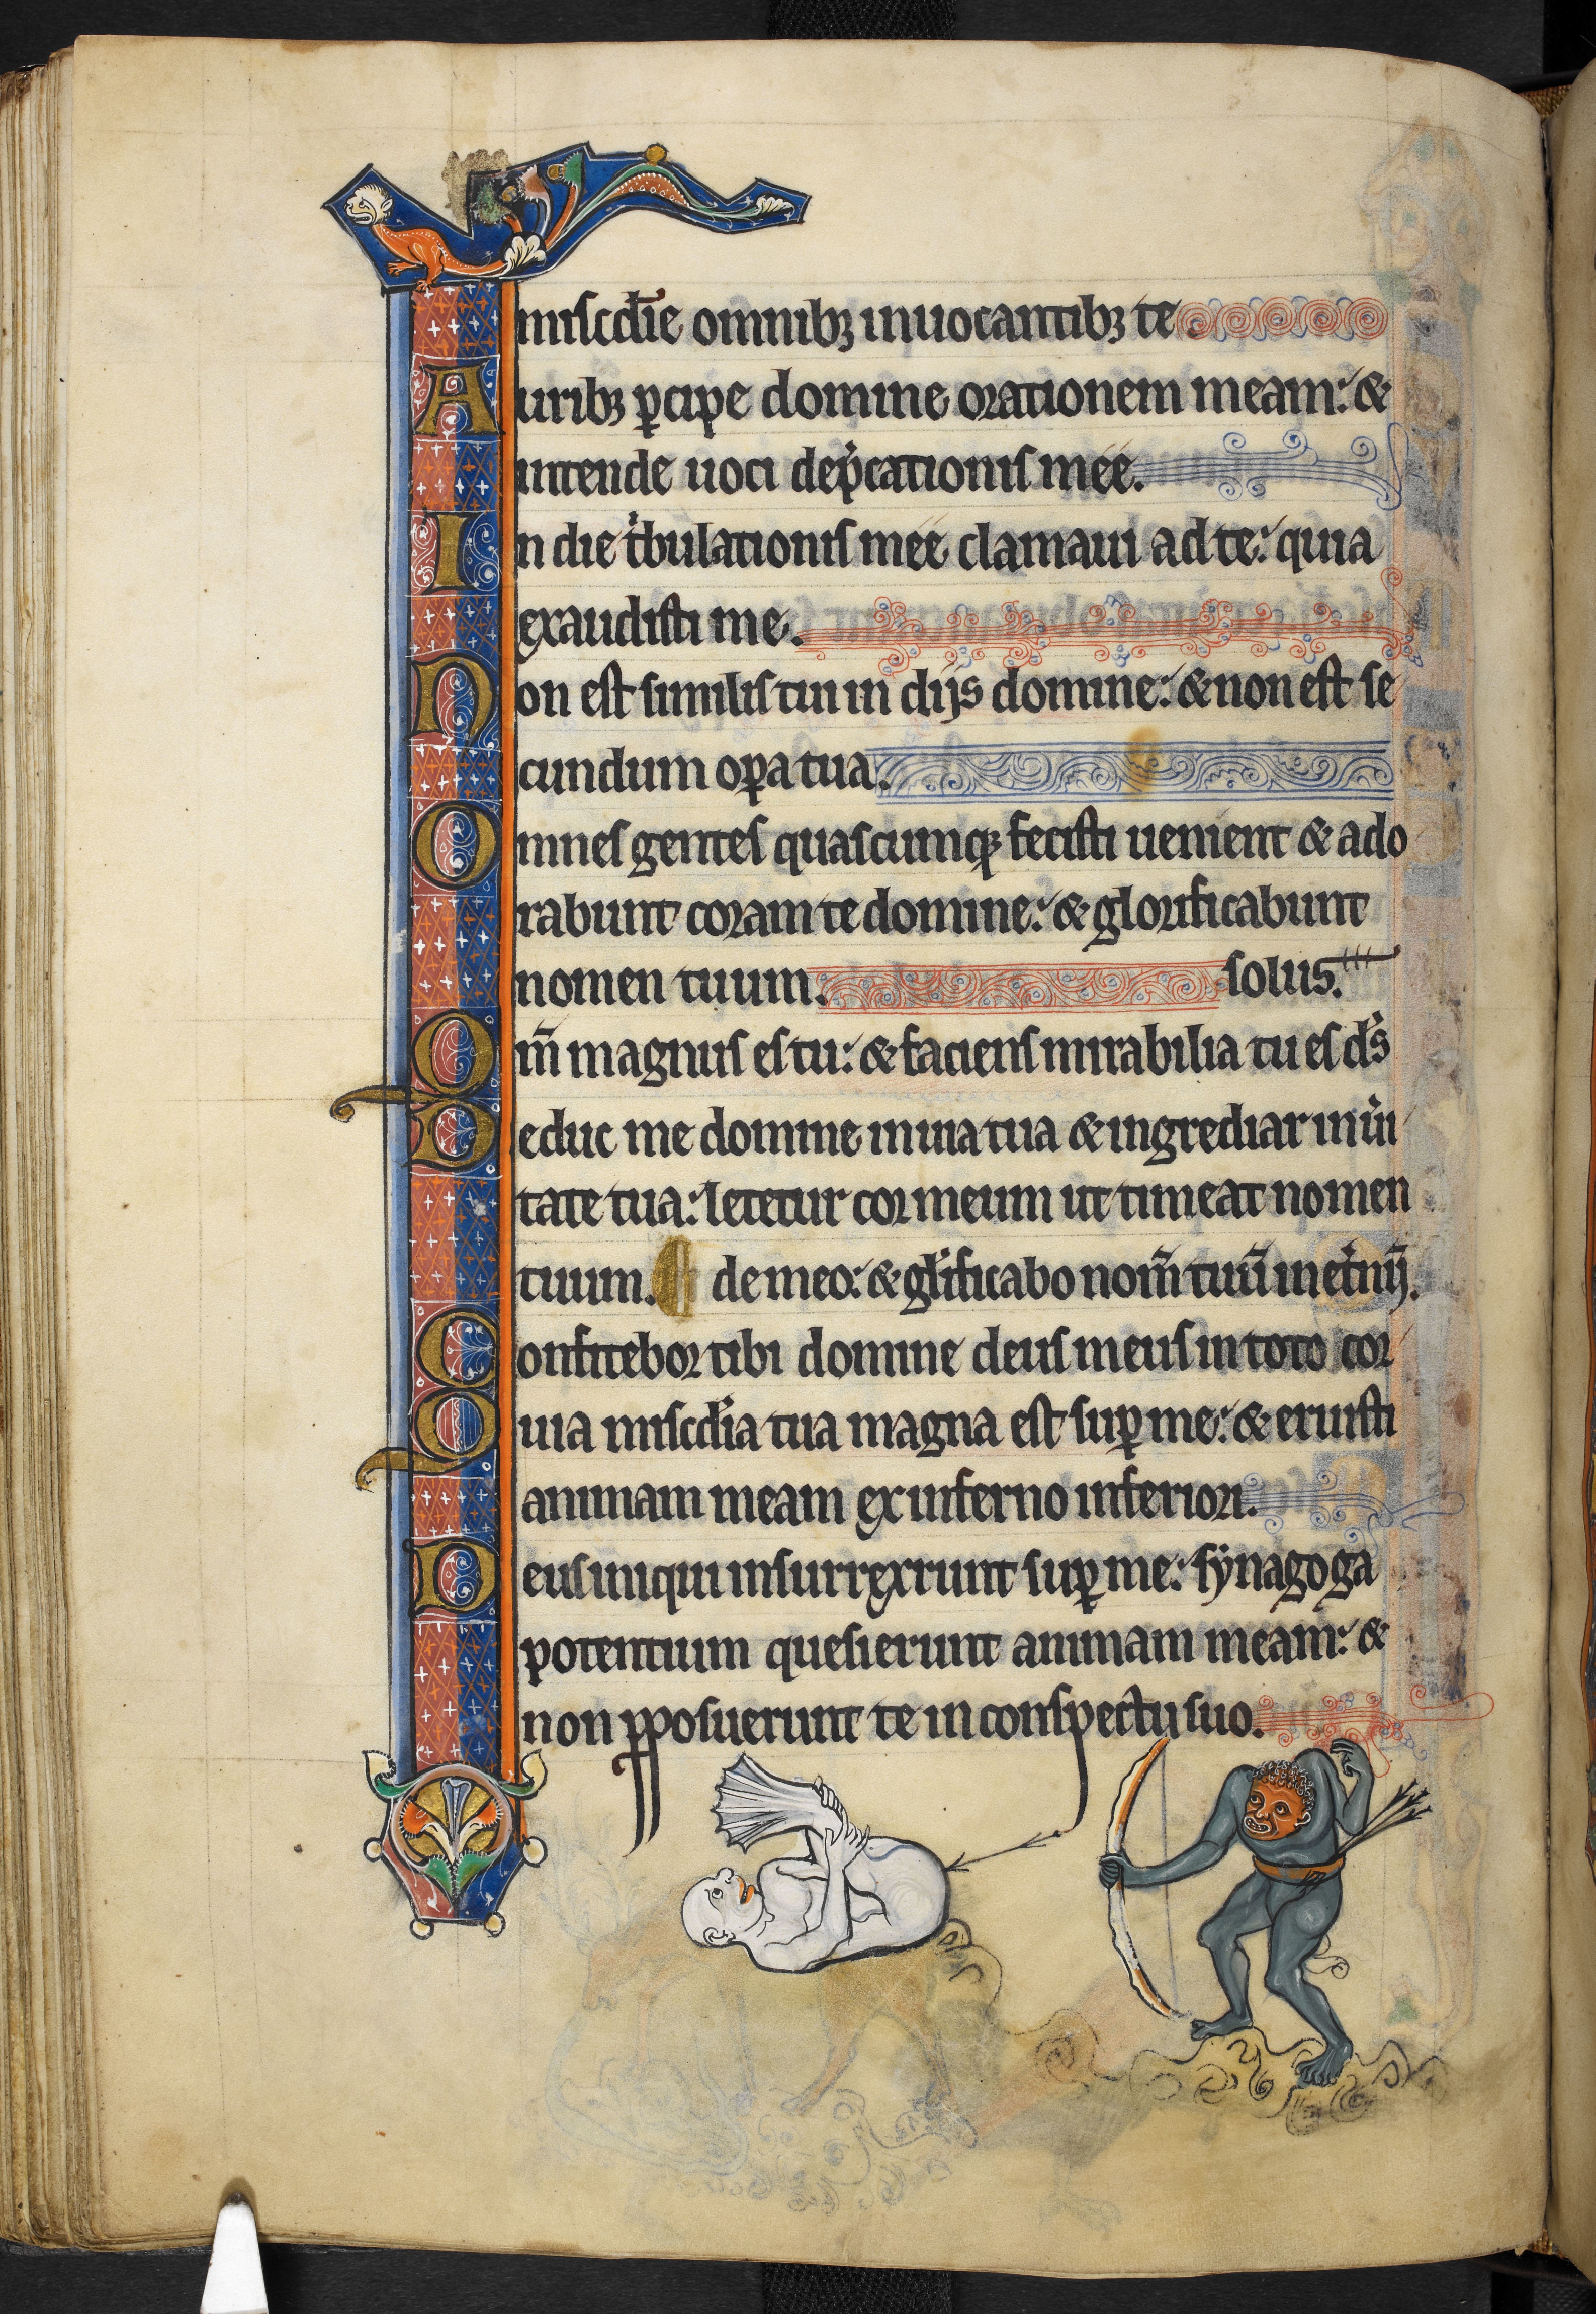 miscd̄ie omnibꝫ inuocantibꝫ te.
Auribꝫ ꝑcipe domine orationem meam: &
intende uoci dep̾cationis mee.
In die t̾bulationis mee clamaui ad te: quia
exaudisti me.
Non est similis tui in dijs domine: & non est se
cundum oꝑa tua.
Omnes gentes quascumqꝫ fecisti uenient & ado
rabunt coram te domine: & glorificabunt
nomen tuum. solus.
Qm̄ magnus es tu: & faciens mirabilia tu es ds̾
Deduc me domine in uia tua & ingrediar in ui̾
tate tua: letetur cor meum ut timeat nomen
tuum. ¶ de meo: & gl̾ificabo nom̄ tuū inet̾nū.
Confitebor tibi domine deus meus in toto cor
Quia miscd̾ia tua magna est suꝑ me: & eruisti
animam meam ex inferno inferiori.
Deus iniqui insurrexerunt suꝑ me: synagoga
potentium quesierunt animam meam: &
non ꝓposuerunt te in conspectu suo.